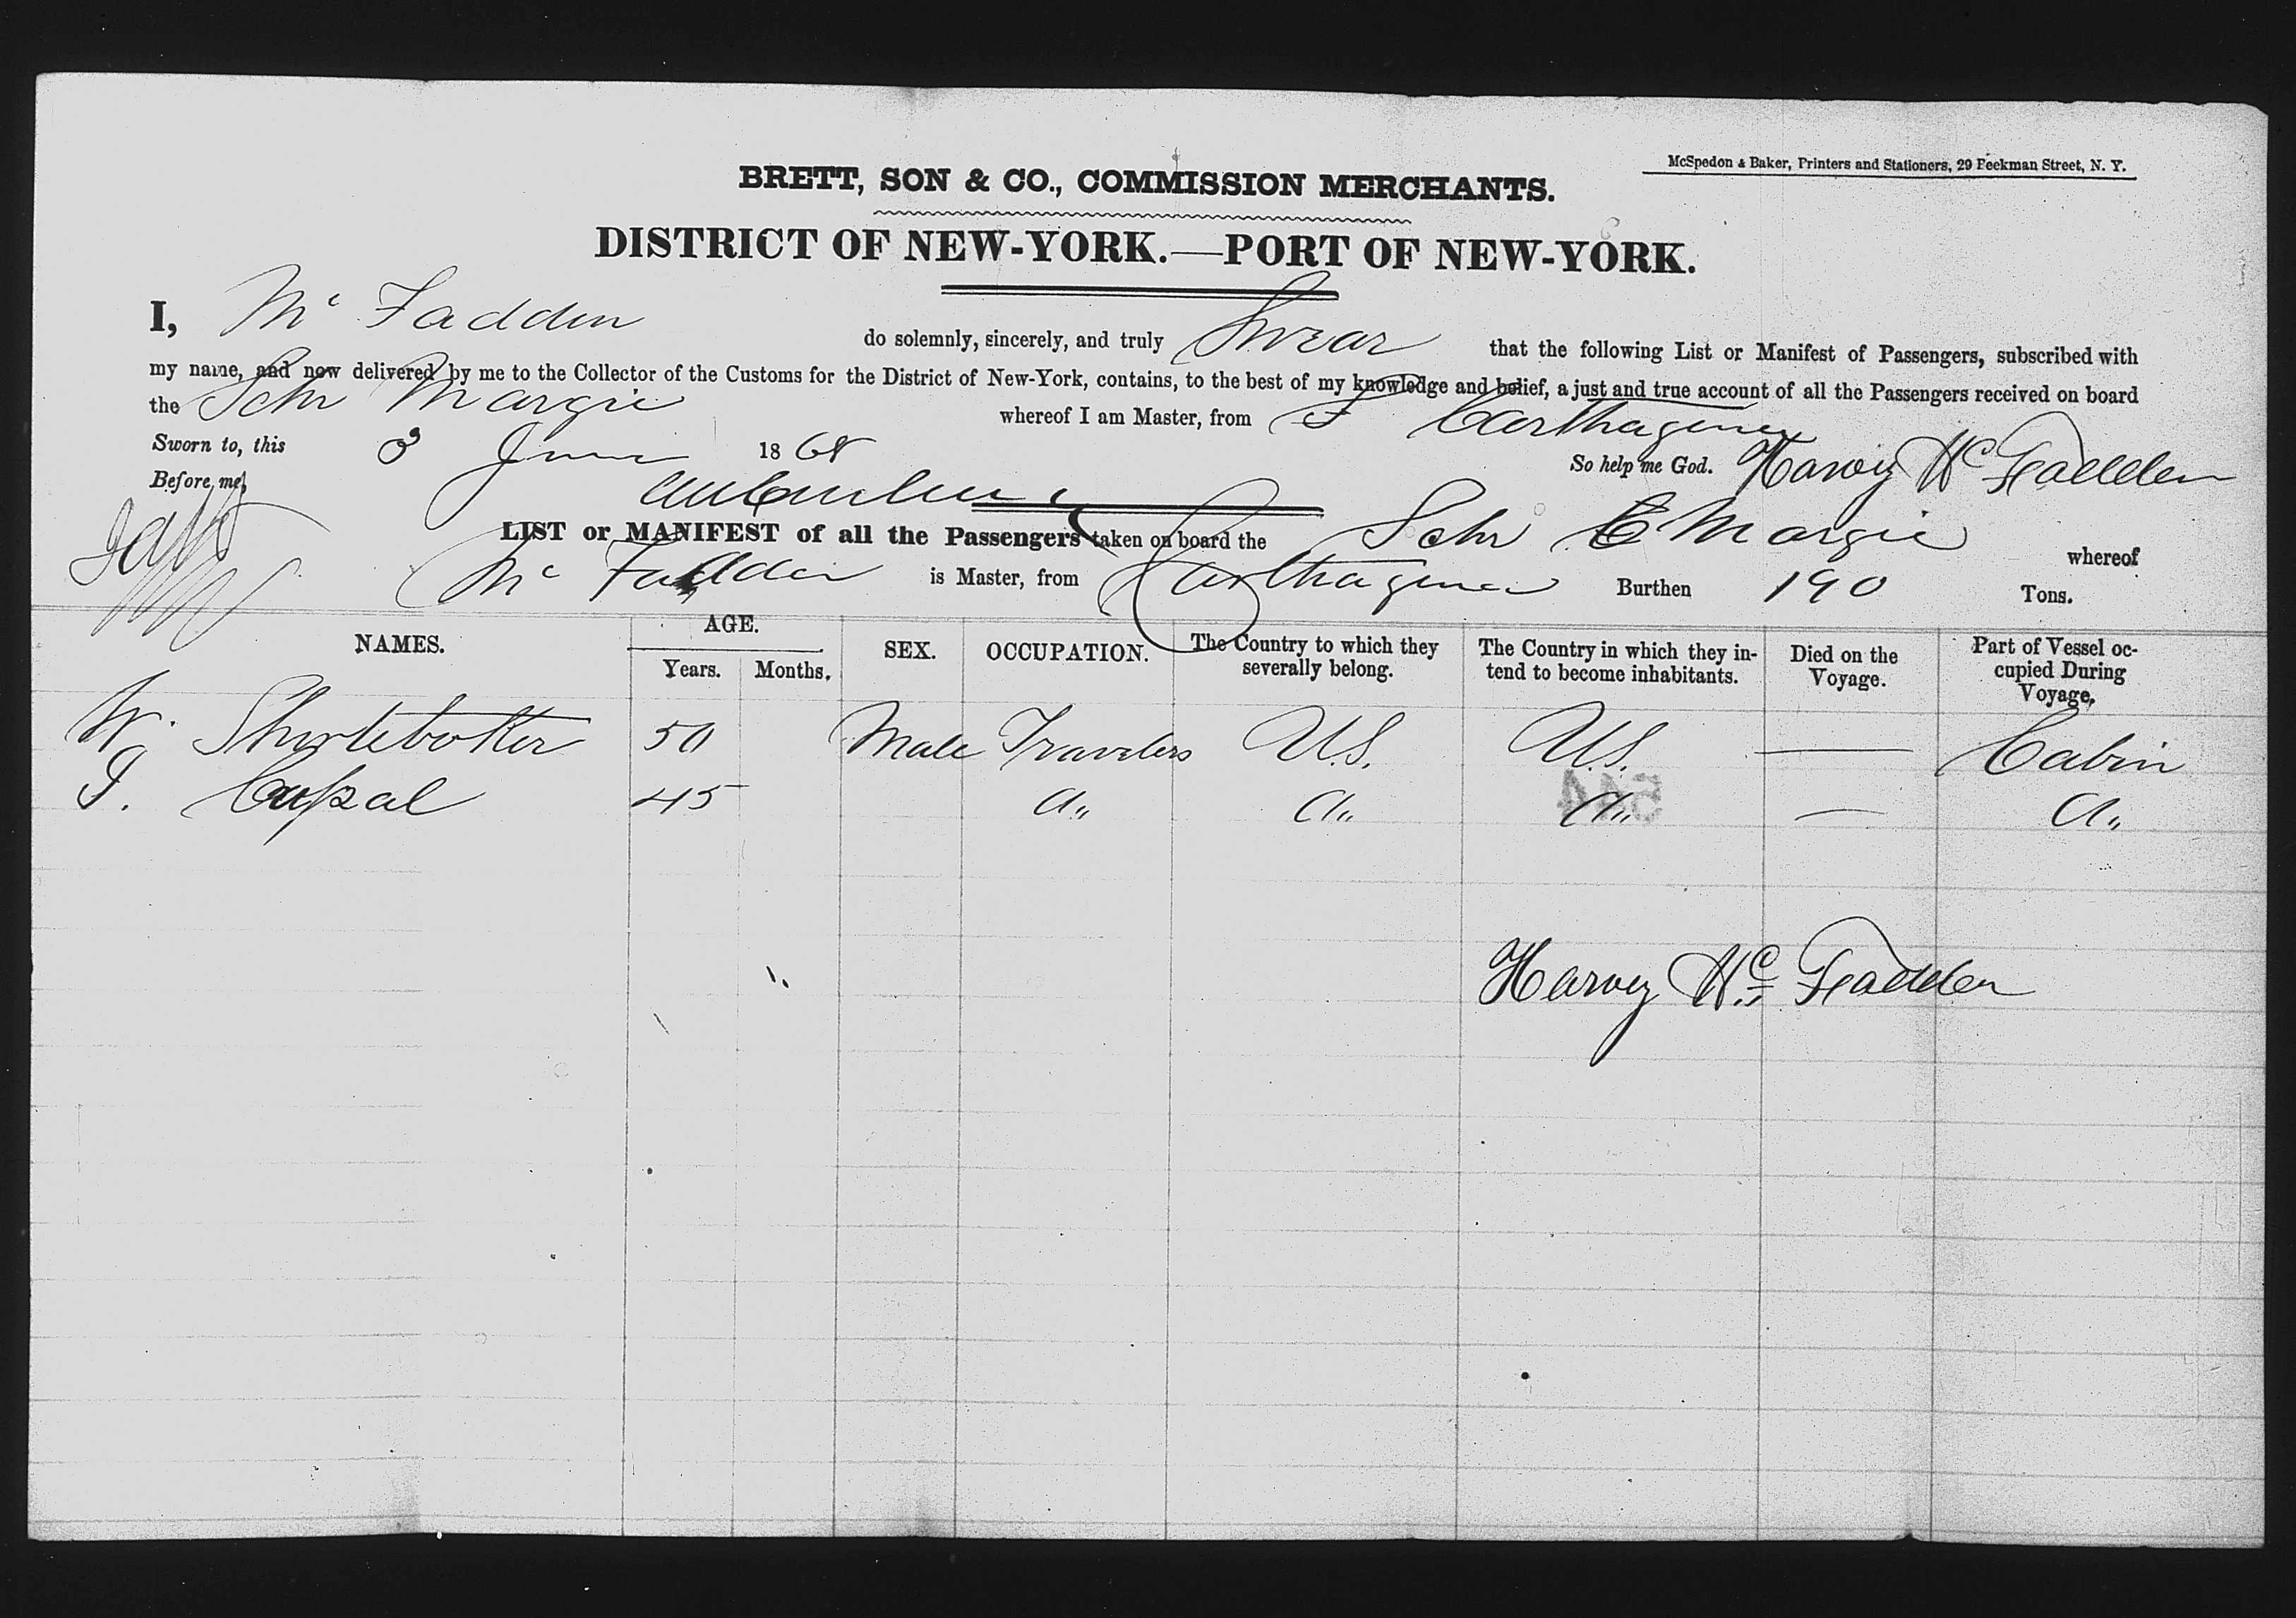 McSpedon & Baker, Printers and Stationers, 29 Beekman Street, N. Y.
BRETT, SON & CO., COMMISSION MERCHANTS.
DISTRICT OF NEW-YORK.—PORT OF NEW-YORK.
I, Mc Fadden do solemnly, sincerely, and truly Swear that the following List or Manifest of Passengers, subscribed with
my name, and now delivered by me to the Collector of the Customs for the District of New-York, contains, to the best of my knowledge and belief, a just and true account of all the Passengers received on board
the Schr Margie whereof I am Master, from Carthagena
Sworn to, this 3 June 1868 So help me God. Harvey Mc Fadden
Before me,
LIST or MANIFEST of all the Passengers taken on board the Schr E Margie whereof
Mc Fadden is Master, from Carthagena Burthen 190 Tons.
NAMES. AGE. Years. Months. SEX. OCCUPATION. The Country to which they severally belong. The Country in which they intend to become inhabitants. Died on the Voyage. Part of Vessel occupied During Voyage.
W. 50 Male Travelers U.S. U.S. — Cabin
J. 45 a,, a,, a,, — a,,
544
Harvey Mc Fadden